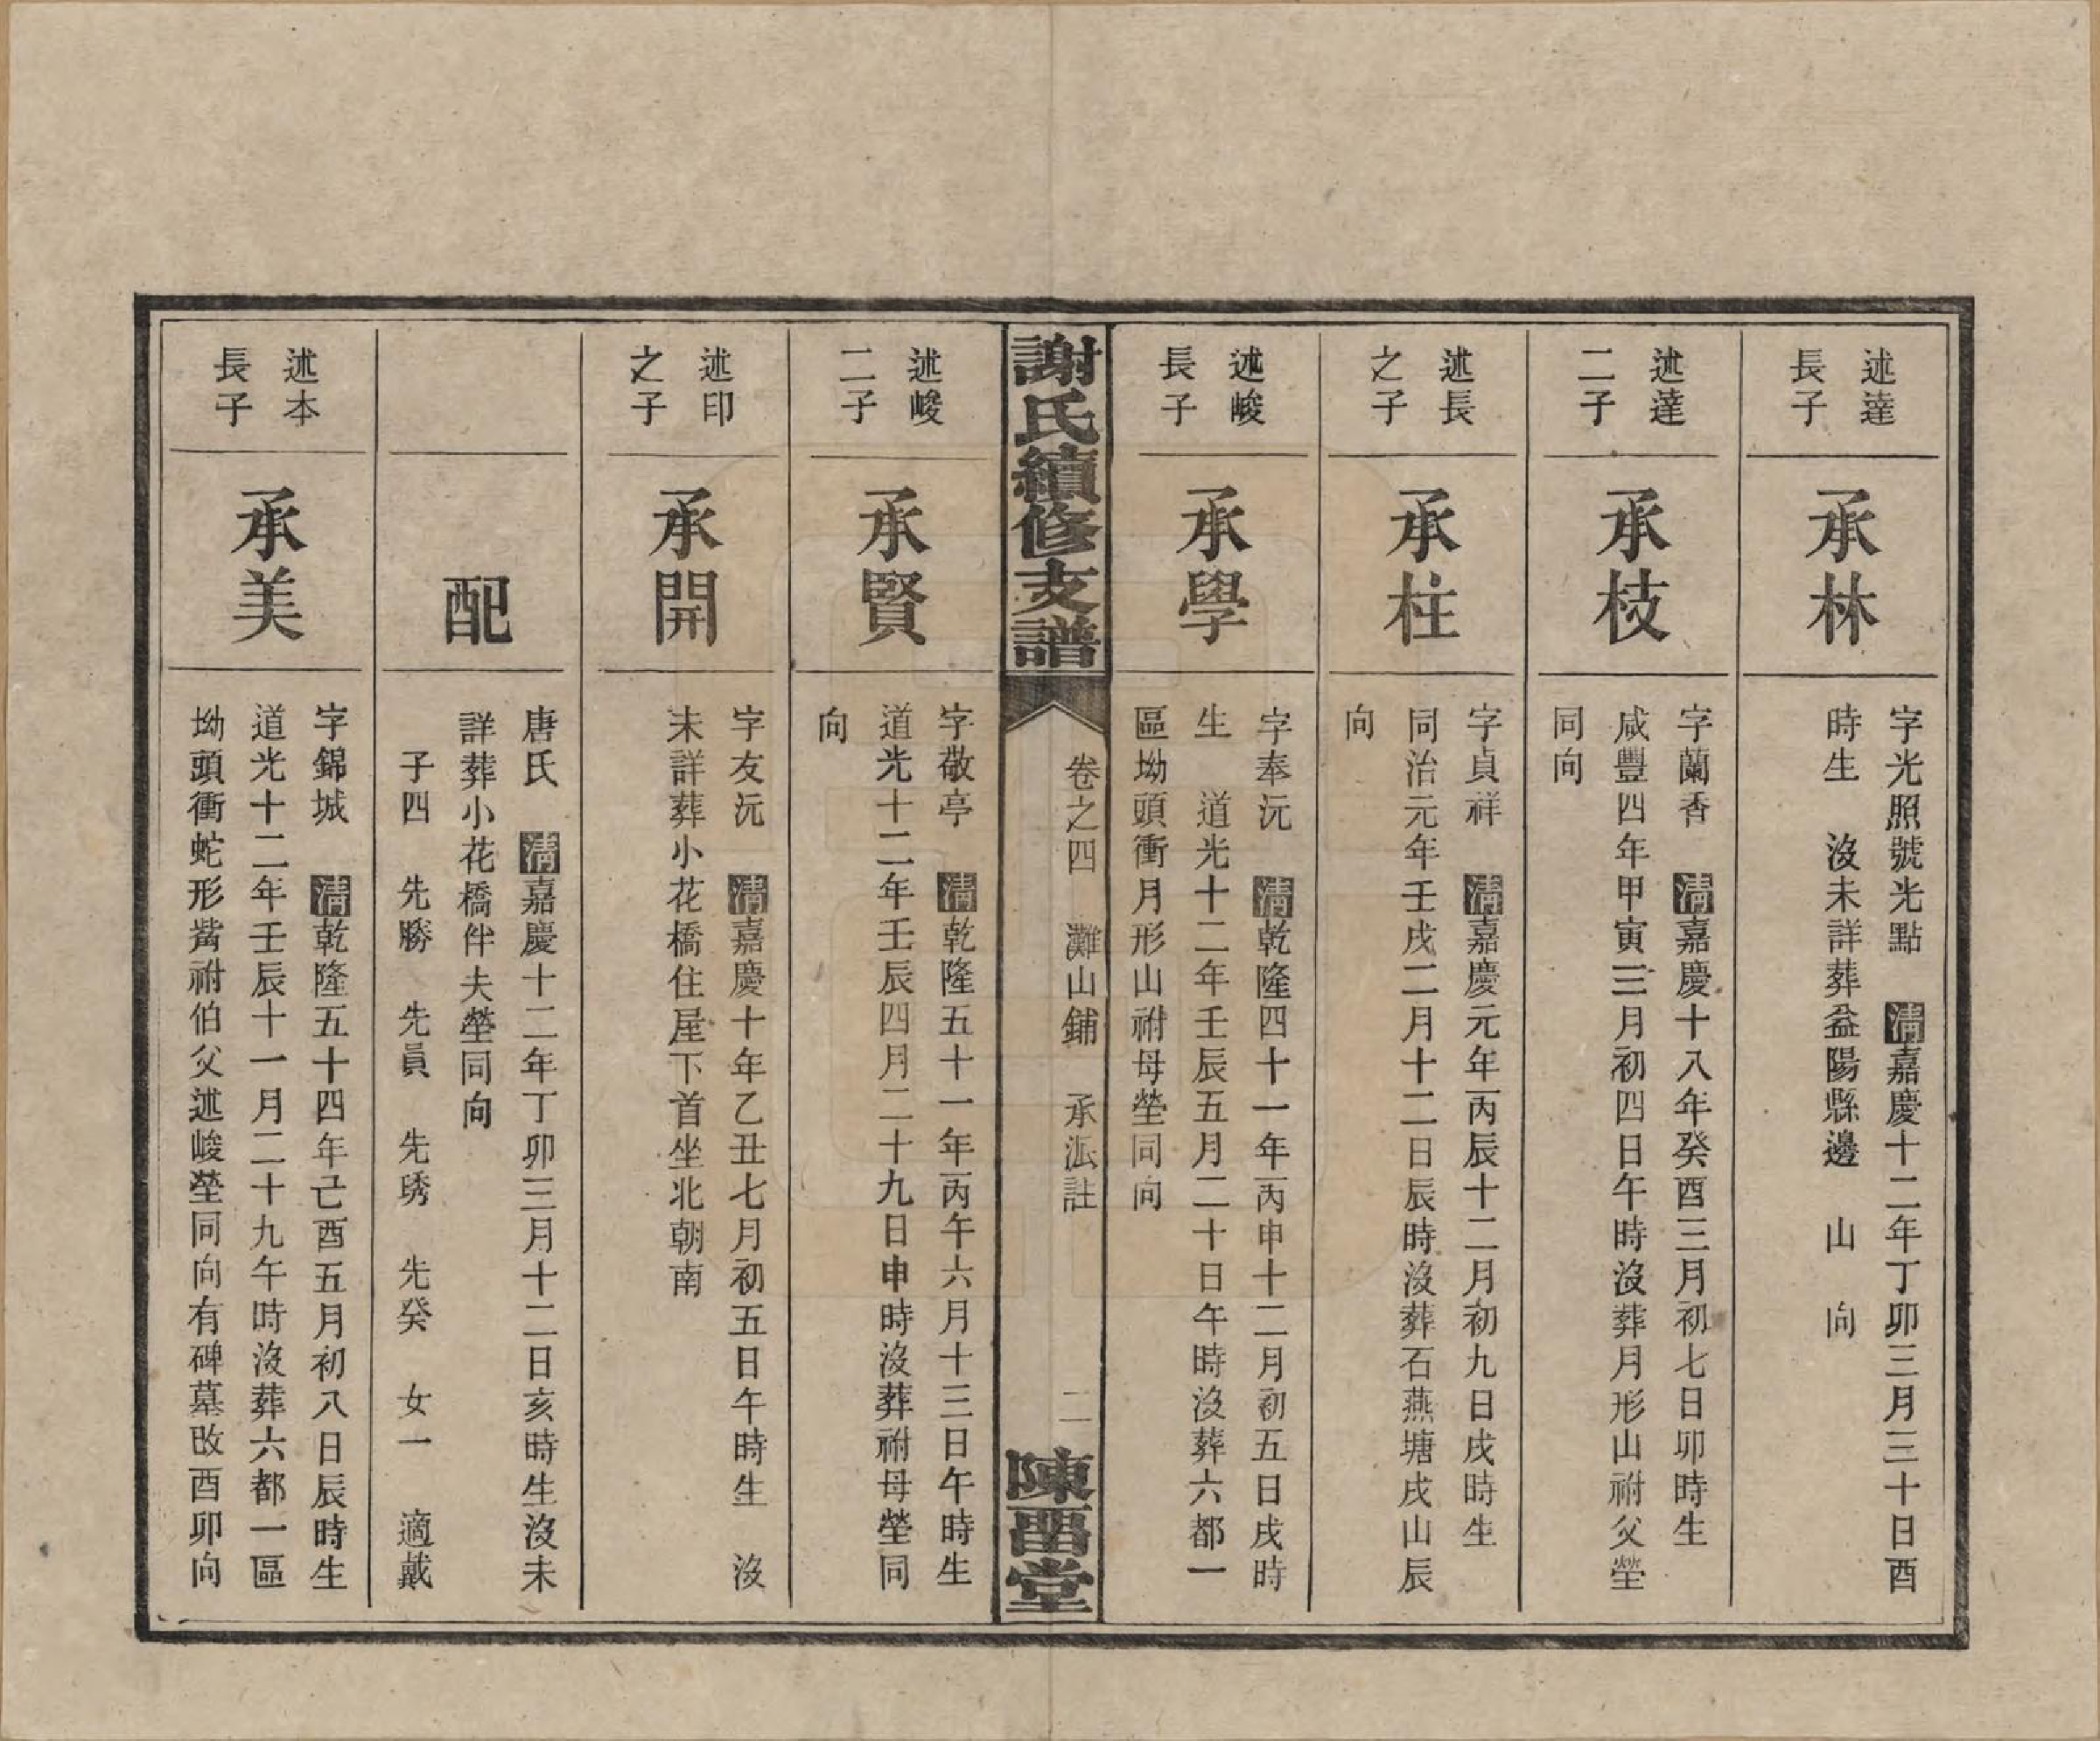 述達
長子
承林
字光照號光點　清嘉慶十二年丁卯三月三十日酉
時生　沒未詳葬益陽縣邊　山　向
述達
二子
承枝
字蘭香　清嘉慶十八年癸酉三月初七日卯時生
咸豐四年甲寅三月初四日午時沒葬月形山祔父塋
同向
述長
之子
承柱
字貞祥　清嘉慶元年丙辰十二月初九日戌時生
同治元年壬戌二月十二日辰時沒葬石燕塘戌山辰
向
述峻
長子
承學
字奉沅　清乾隆四十一年丙申十二月初五日戌時
生　道光十二年壬辰五月二十日午時沒葬六都一
區坳頭衝月形山祔母塋同向
謝氏續修支譜
卷之四　灘山鋪　承派註
二
陳畱堂
述峻
二子
承賢
字敬亭　清乾隆五十一年丙午六月十三日午時生
道光十二年壬辰四月二十九日申時沒葬祔母塋同
向
述印
之子
承開
字友沅　清嘉慶十年乙丑七月初五日午時生　沒
未詳葬小花橋住屋下首坐北朝南
配
唐氏　清嘉慶十二年丁卯三月十二日亥時生沒未
詳葬小花橋伴夫塋同向
子四　先勝　先員　先琇　先癸　女一　適戴
述本
長子
承美
字錦城　清乾隆五十四年己酉五月初八日辰時生
道光十二年壬辰十一月二十九午時沒葬六都一區
坳頭衝蛇形觜祔伯父述峻塋同向有碑墓改酉卯向